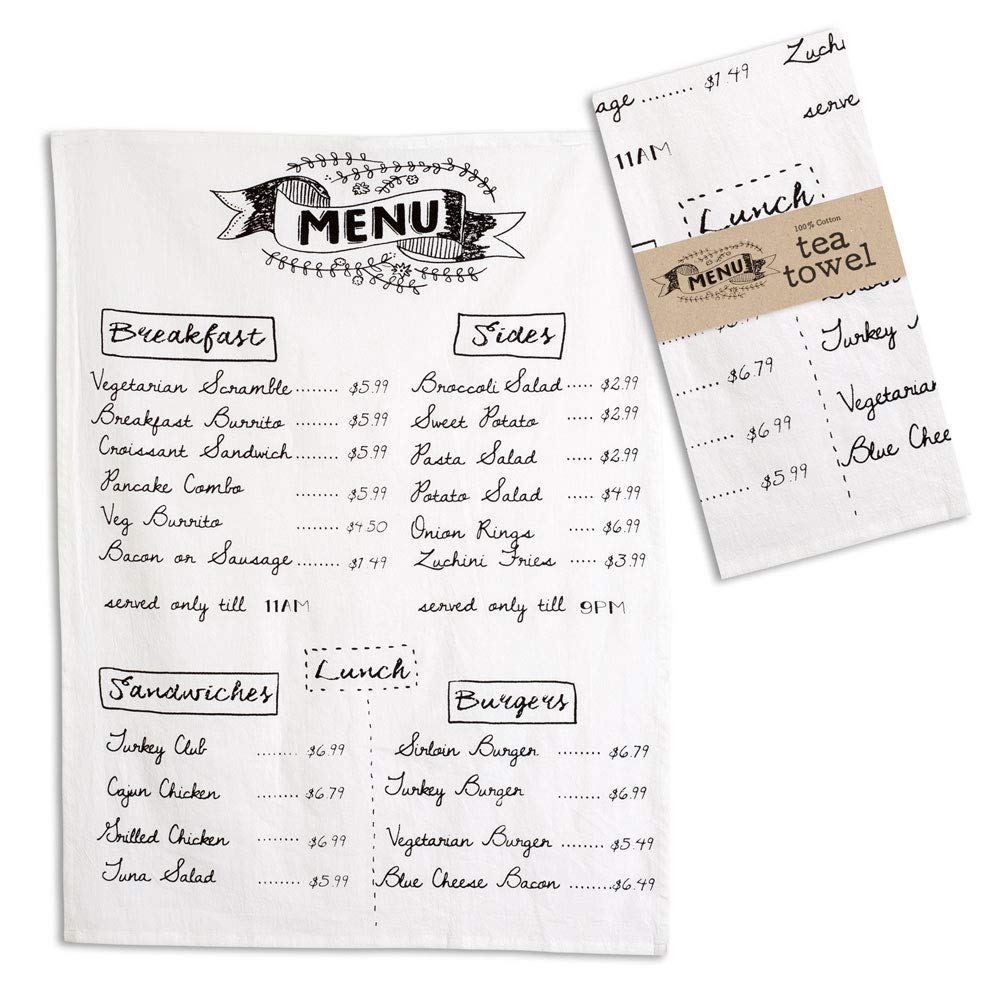 MENU
Breakfast
Vegetarian Scramble ........ $5.99
Breakfast Burrito ........ $5.99
Croissant Sandwich ........ $5.99
Pancake Combo ........ $5.99
Veg Burrito ........ $4.50
Bacon or Sausage ........ $1.49
served only till 11AM
Sides
Broccoli Salad ..... $2.99
Sweet Potato ..... $2.99
Pasta Salad ..... $2.99
Potato Salad ..... $4.99
Onion Rings ..... $6.99
Zuchini Fries ..... $3.99
served only till 9PM
Lunch
Sandwiches
Turkey Club ........ $6.99
Cajun Chicken ........ $6.79
Grilled Chicken ........ $6.99
Tuna Salad ........ $5.99
Burgers
Sirloin Burger ........ $6.79
Turkey Burger ........ $6.99
Vegetarian Burger ........ $5.49
Blue Cheese Bacon ........ $6.49
age ........ $1.49
Zuch
serve
11AM
Lunch
100% Cotton
MENU
tea
towel
Turkey
$6.79
Vegetarian
$6.99
Blue Chee
$5.99